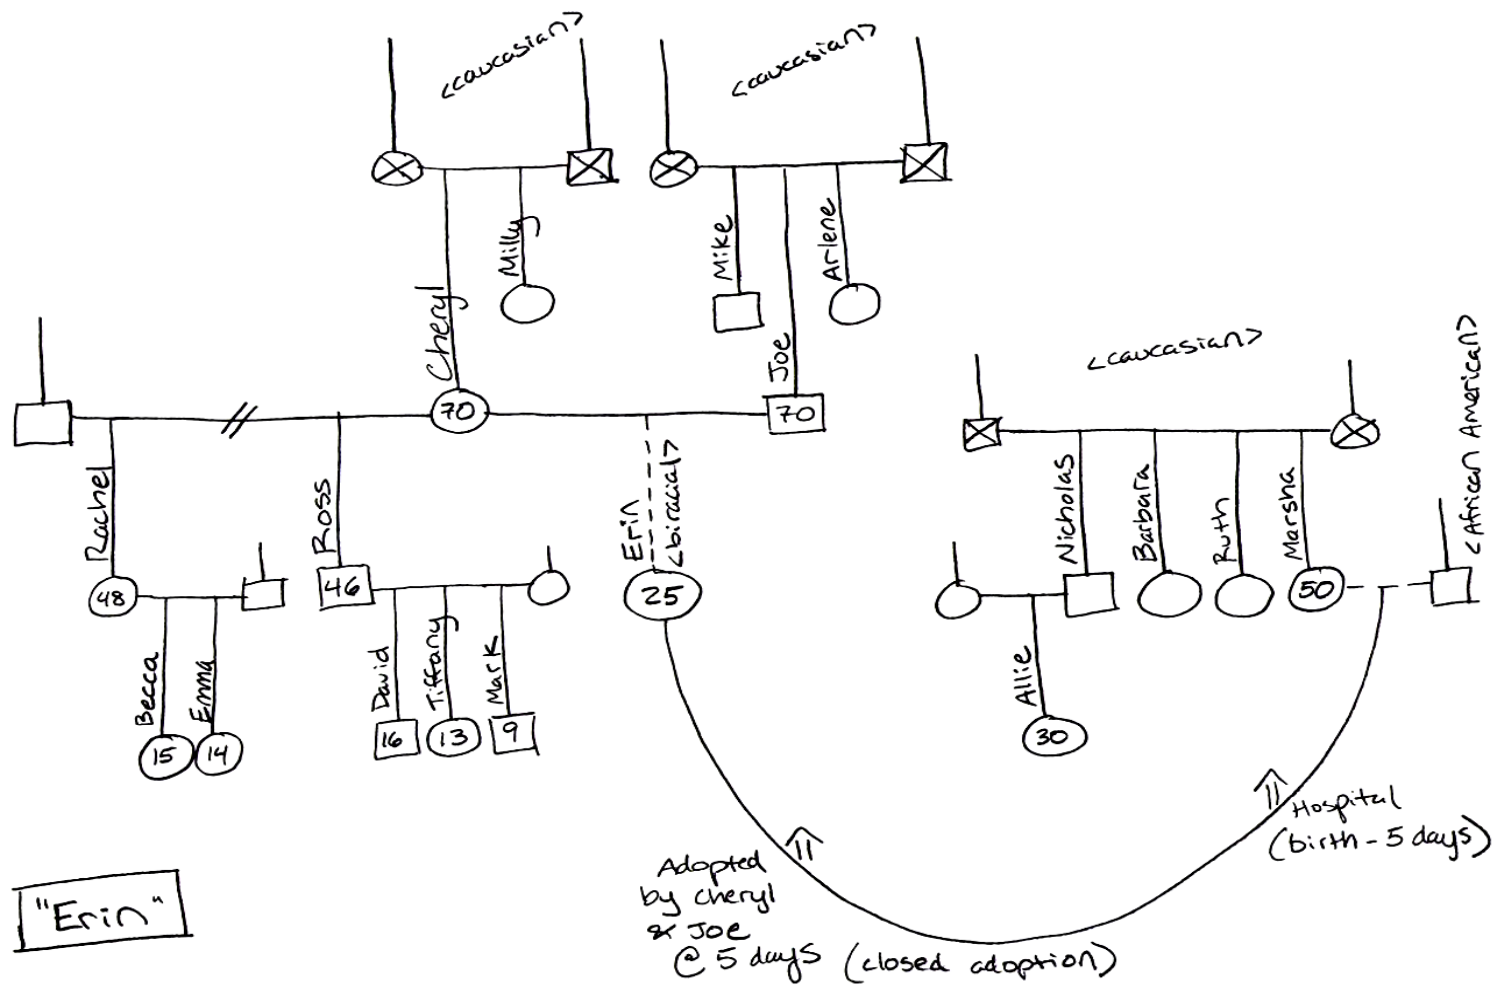 <caucasian>
<caucasian>
Milly
Mike
Arlene
Cheryl
Joe
<caucasian>
<African American>
70
70
Rachel
Ross
Erin
<biracial>
Nicholas
Barbara
Ruth
Marsha
48
46
25
50
Becca
Emma
David
Tiffany
Mark
Allie
15
14
16
13
9
30
Hospital
(birth - 5 days)
Adopted
by Cheryl
& Joe
@ 5 days (closed adoption)
"Erin"